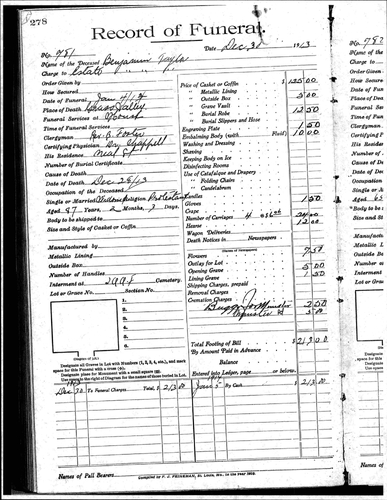 278
Record of Funeral.
No. 981 Date Dec 31 1913
Name of the Deceased Benjamin Taylor
Charge to Estate " "
Order Given by
How Secured
Date of Funeral Jan 4/14
Place of Death Grass Valley
Funeral Services at
Time of Funeral Services
Clergyman Rev. Foster
Certifying Physician Dr Chappell
His Residence
Number of Burial Certificate
Cause of Death
Date of Death Dec 29/13
Occupation of the Deceased
Single or Married Religion Protestant
Aged 87 Years 2 Months 7 Days
Body to be shipped to
Size and Style of Casket or Coffin
Manufactured by
Metallic Lining
Outside Box
Number of Handles
Interment at Cemetery.
Lot or Grave No. Section No.
1.
2.
3.
4.
5.
6.
Diagram of Lot
Designate all Graves in Lot with Numbers (1, 2, 3, 4, etc.), and mark space for this Funeral with a cross (+).
Designate place for Monument with a small square (□).
Use space to the right of Diagram for the names of those buried in Lot.
Price of Casket or Coffin $ 125.00
" Metallic Lining
" Outside Box 5.00
" Grave Vault
" Burial Robe 12.50
" Burial Slippers and Hose
Engraving Plate 1.50
Embalming Body (with Fluid) 10.00
Washing and Dressing
Shaving
Keeping Body on Ice
Disinfecting Rooms
Use of Catafalque and Drapery
" Folding Chairs
" Candelabrum
Candles
Gloves 1.50
Crape
Number of Carriages 4 @ $6.00 24.00
Hearse 12.00
Wagon Deliveries
Death Notices in Newspapers
(Names of Newspapers)
Flowers
Outlay for Lot
Opening Grave 5.00
Lining Grave 1.50
Shipping Charges, prepaid
Removal Charges
Cremation Charges
Buggy for Minister 2.50
Minister 5.00
Total Footing of Bill $ 213.00
By Amount Paid in Advance
Balance
Entered into Ledger, page or below.
1913
Dec 30 To Funeral Charges Total, $ 213.00 Jan 5 By Cash $ 213.00
Names of Pall Bearers
Compiled by F. J. FEINEMAN, St. Louis, Mo., in the year 1902.